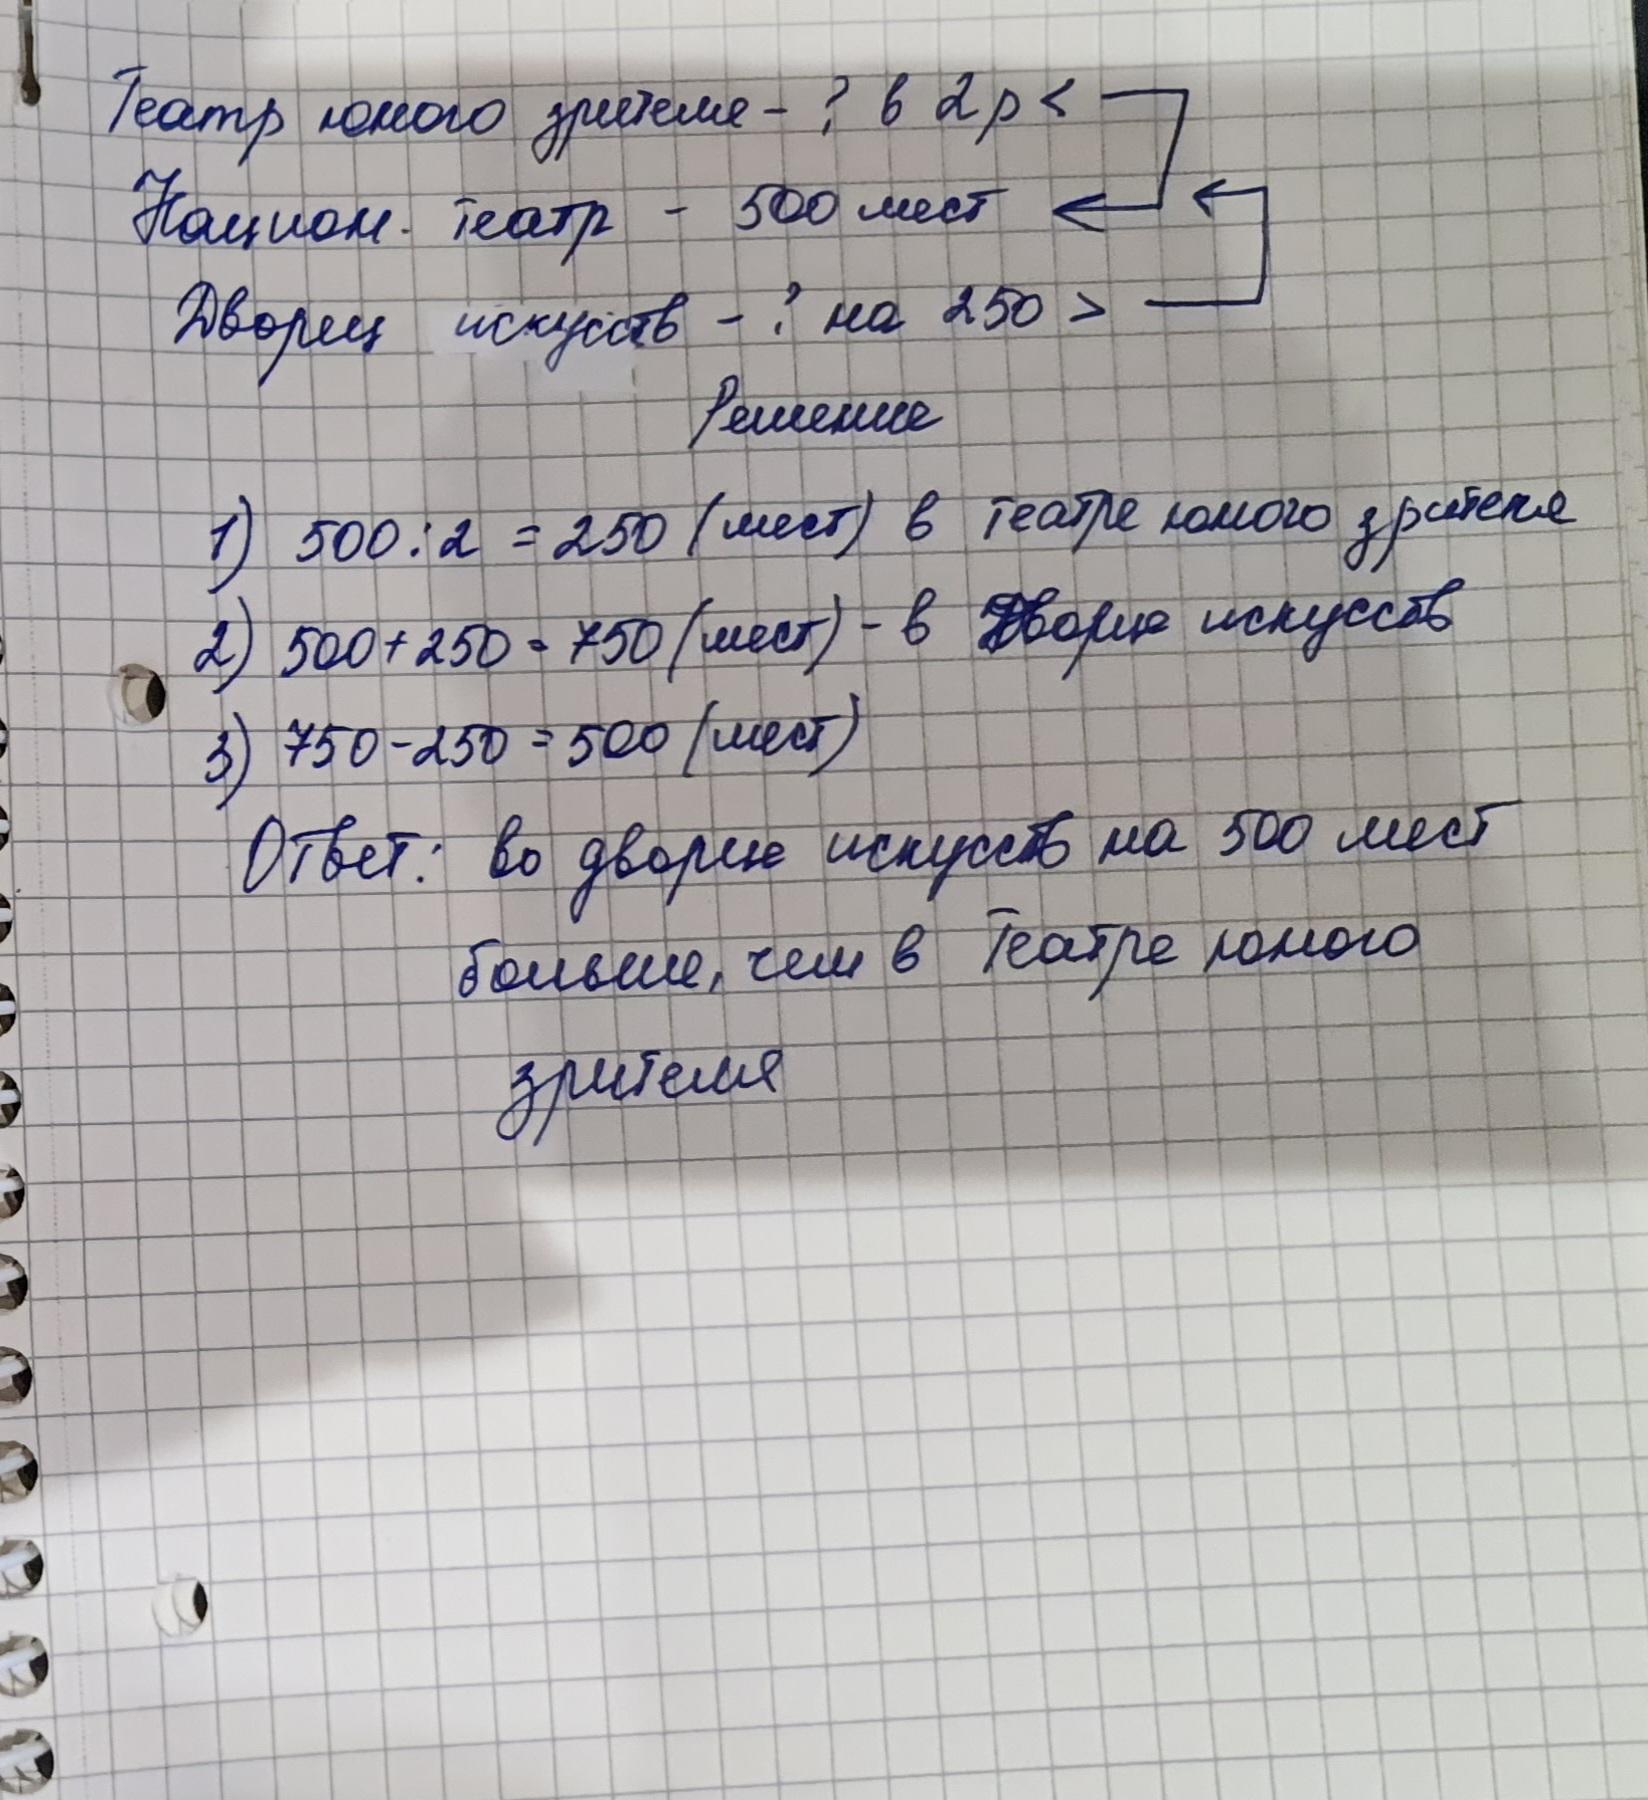 Театр юного зрителя - ? в 2 р <
Национ. театр - 500 мест
Дворец искусств - ? на 250 >
Решение
1) 500 : 2 = 250 (мест) в театре юного зрителя
2) 500 + 250 = 750 (мест) - в Дворце искусств
3) 750 - 250 = 500 (мест)
Ответ: во дворце искусств на 500 мест
больше, чем в Театре юного
зрителя